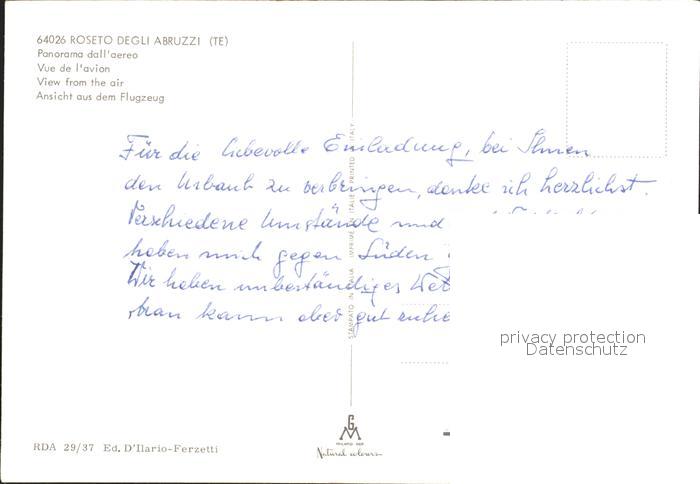 64026 ROSETO DEGLI ABRUZZI (TE)
Panorama dall'aereo
Vue de l'avion
View from the air
Ansicht aus dem Flugzeug
Für die liebevolle Einladung, bei Ihnen
den Urlaub zu verbringen, danke ich herzlichst.
Verschiedene Umstände und
haben mich gegen Süden
Wir haben unbeständiges Wet
Man kann aber gut
STAMPATO IN ITALIA IMPRIMÉ EN ITALIE PRINTED IN ITALY
privacy protection
Datenschutz
GM
MILANO
RDA 29/37 Ed. D'Ilario-Ferzetti
Natural colours